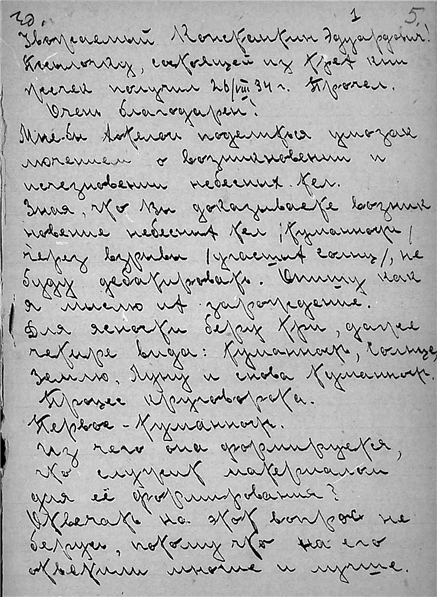 зд. 1 5.
Уважаемый Константин Эдуардович!
Посылочку, состоящей из трех кни
жечек получил 26/VIII 34 г. Прочел.
Очень благодарен!
Мне бы хотелось поделиться умозак
лючением о возникновении и
исчезновении небесных тел.
Зная, что Вы доказываете возник
новение небесных тел /туманност/
через взрывы /участия солнц/, не
буду дебатировать. Опишу как
я мыслю их зарождение.
Для ясности беру три, даже
четыре вида: туманность, Солнце,
Землю, Луну и снова туманност.
Процес круговорота.
Первое - туманност.
Из чего она формируется,
что служит материалом
для её формирования?
Отвечать на этот вопрос не
берусь, потому что на его
ответили многие и лучше.